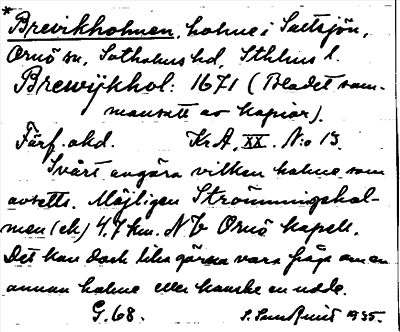 *
Brevikholmen, holme i Saltsjön,
Ornö sn, Sotholms hd, Sthlms l.
Brewijkhol: 1671 (Bladet sam-
mansatt av kopior).
Förf. okd. KrA, XX. N:o 13.
Svårt avgöra vilken holme som
avsetts. Möjligen Strömmingshol-
men (ek) 4.7 km. NV Ornö kapell.
Det kan dock lika gärna vara fråga om en
annan holme eller kanske en udde.
G. 68. 1935.